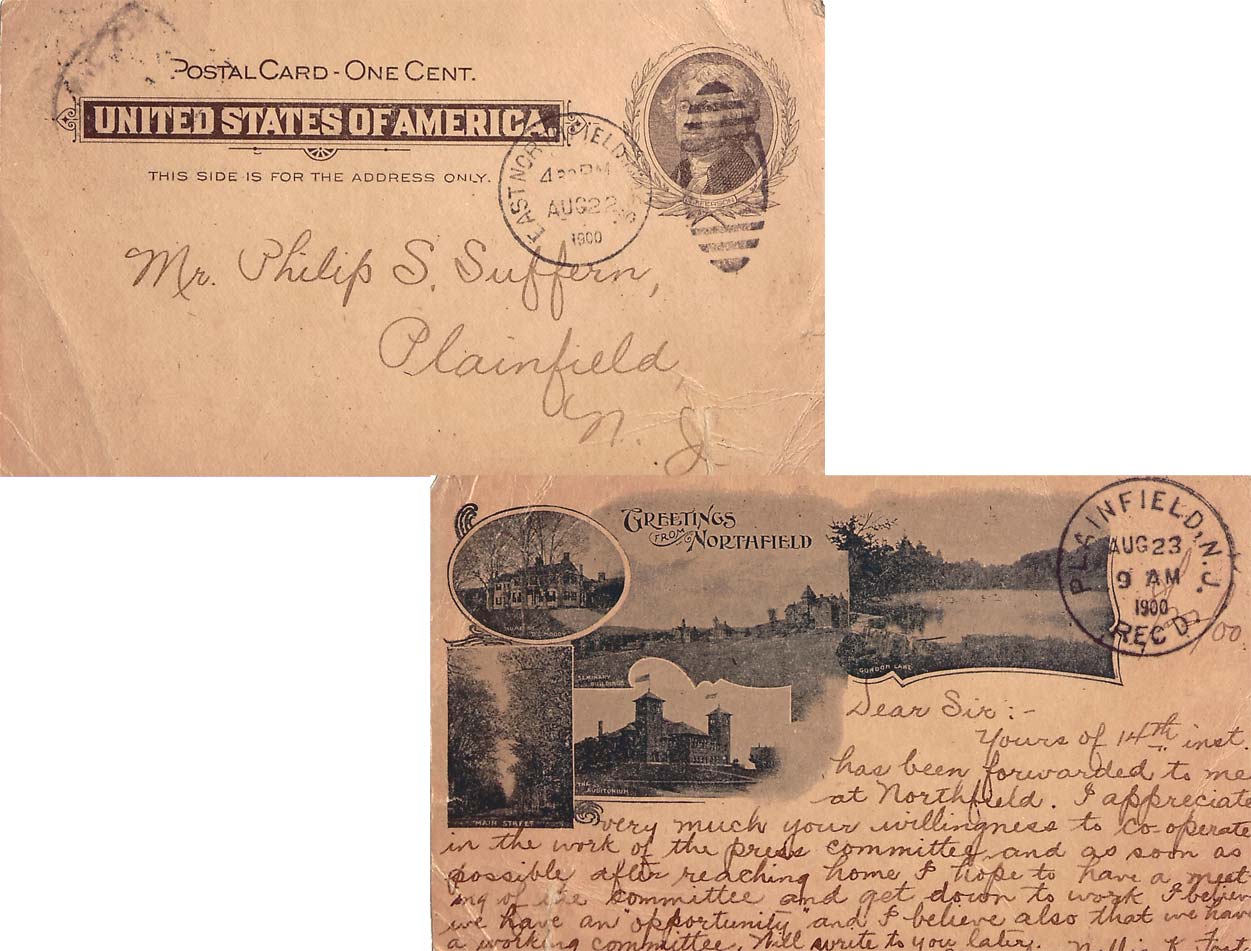 POSTAL CARD - ONE CENT.
UNITED STATES OF AMERICA.
THIS SIDE IS FOR THE ADDRESS ONLY.
EAST NORTHFIELD
4 30 PM
AUG 22
1900
JEFFERSON
Mr. Philip S. Suffern,
Plainfield,
N. J.
GREETINGS
FROM
NORTHFIELD
PLAINFIELD, N.J.
AUG 23
9 AM
1900
REC'D.
HOME OF
D.L. MOODY
SEMINARY
BUILDINGS
GORDON LAKE
THE
AUDITORIUM
MAIN STREET
Dear Sir:-
Yours of 14th inst.
has been forwarded to me
at Northfield. I appreciate
very much your willingness to co-operate
in the work of the press committee and as soon as
possible after reaching home I hope to have a meet-
ing of the committee and get down to work I believe
we have an "opportunity" and I believe also that we have
a working committee. Will write to you later.